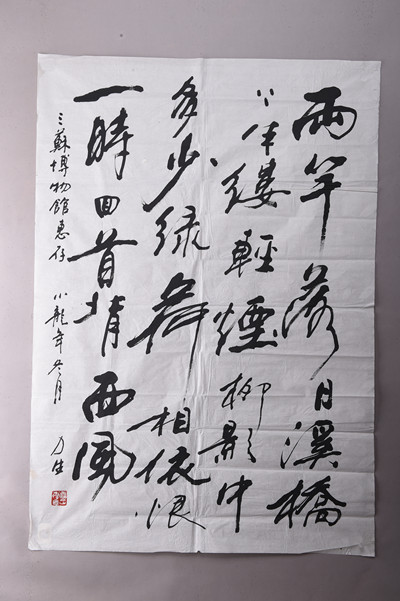 兩竿落日溪橋
上半縷輕煙柳影中
多少绿荷相依恨
一時回首背西風
三蘇博物館惠存 小龍年冬月 力生